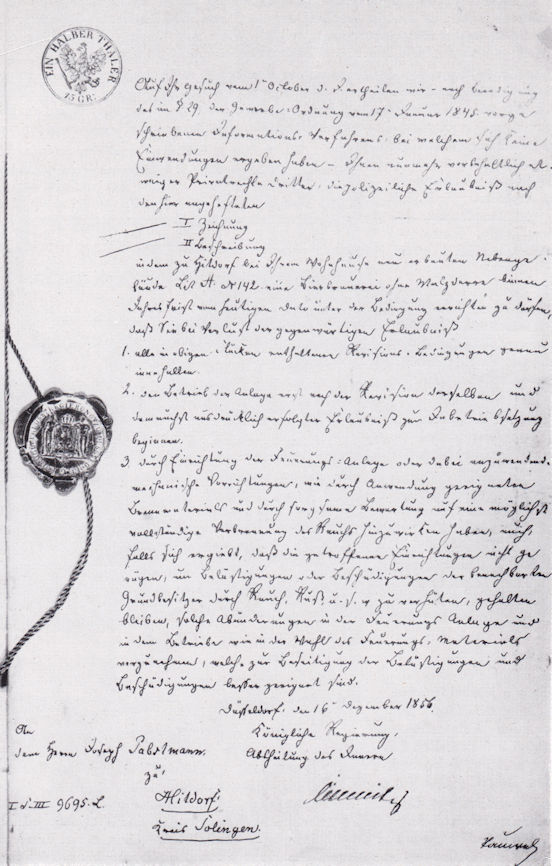 EIN HALBER THALER
15 GR:
Auf Ihr Gesuch vom 1t October d. J. ertheilen wir – nach Beendigung
des im § 29. der Gewerbe-Ordnung vom 17t Januar 1845. vorge
schriebenen Informations-Verfahrens, bei welchem sich keine
Einwendungen ergeben haben – Ihnen nunmehr vorbehaltlich et-
waiger Privatrechte Dritter, die polizeiliche Erlaubniß nach
den hier angehefteten
I Zeichnung
II Beschreibung
in dem zu Hitdorf bei Ihrem Wohnhause neu erbauten Nebenge-
bäude Lit A. No 142 eine Bierbrauerei ohne Malzdarre binnen
Jahresfrist vom heutigen dato unter der Bedingung errichten zu dürfen,
daß Sie bei Verlust der gegenwärtigen Erlaubniß
1. alle in obigen Stücken enthaltenen Revisions-Bedingungen genau
innehalten.
2. den Betrieb der Anlage erst nach der Revision derselben und
demnächst ausdrücklich erfolgter Erlaubniß zur Inbetriebsetzung
beginnen.
3. durch Einrichtung der Feuerungs-Anlage oder dabei anzuwendende
mechanische Vorrichtungen, wie durch Anwendung geeigneten
Brennmaterials und durch sorgsame Bewartung auf eine möglichst
vollständige Verbrennung des Rauchs hinzuwirken haben, auch,
falls sich ergiebt, daß die getroffenen Einrichtungen nicht ge
nügen, um Belästigungen oder Beschädigungen der benachbarten
Grundbesitzer durch Rauch, Ruß u. s. w zu verhüten, gehalten
bleiben, solche Abänderungen in der Feuerungs Anlage und
in dem Betriebe wie in der Wahl des Feuerungs-Materials
vorzunehmen, welche zur Beseitigung der Belästigungen und
Beschädigungen besser geeignet sind.
Düsseldorf, den 16t Dezember 1856.
Königliche Regierung,
Abtheilung des Innern
An
dem Herrn Joseph Pabstmann.
zu
Hitdorf
Kreis Solingen.
I S. III 9695. L.